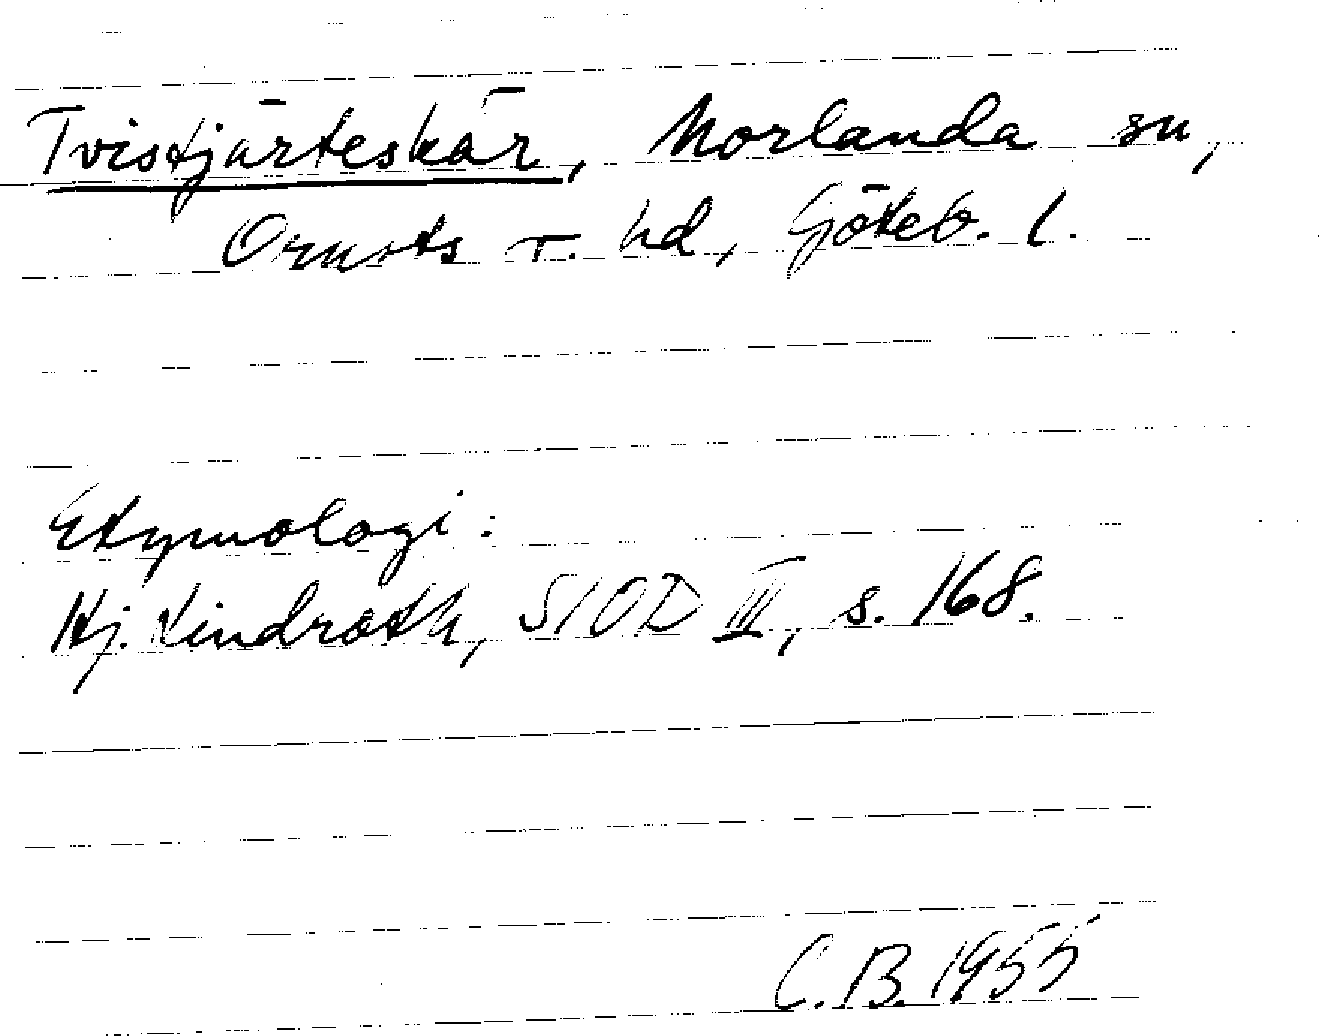 Tvistjärteskär, Morlanda sn,
Orusts v. hd, Göteb. l.
Etymologi:
Hj. Lindroth, SIOD III, s. 168.
C.B. 1955